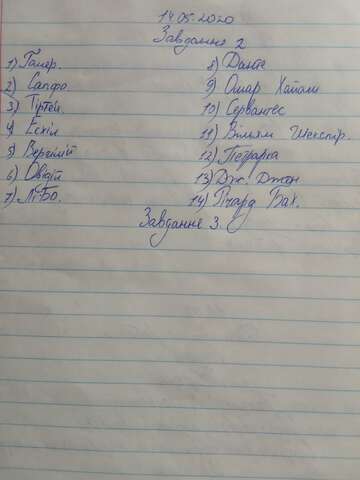 14.05.2020
Завдання 2
1) Гомер.
2) Сапфо.
3) Тіртей.
4) Есхіл
5) Вергілій
6) Овідій
7) Лі Бо.
8) Данте
9) Омар Хайам
10) Сервантес
11) Вільям Шекспір.
12) Петрарка
13) Дж. Джон
14) Річард Бах.
Завдання 3.